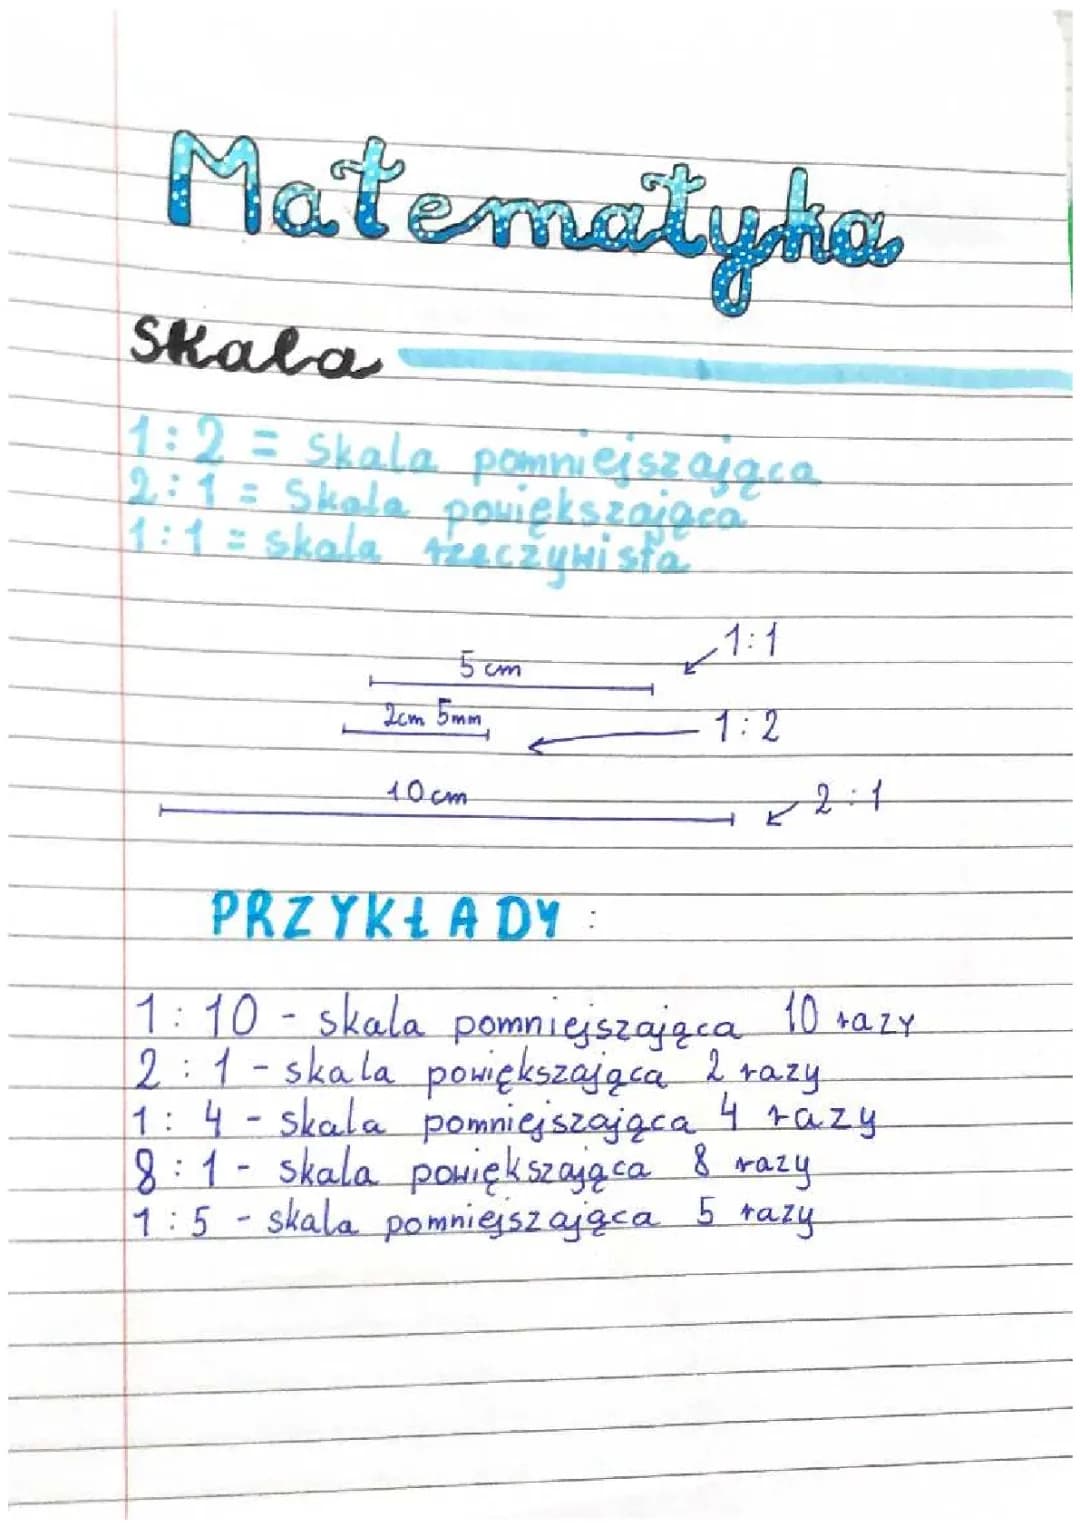 Matematyka
Skala
1:2 = Skala pomniejszająca
2:1 = Skala powiększająca
1:1 = skala rzeczywista
5 cm
1:1
2cm 5mm
1:2
10 cm
2:1
PRZYKŁADY:
1:10 - skala pomniejszająca 10 razy
2:1 - skala powiększająca 2 razy
1:4 - skala pomniejszająca 4 razy
8:1 - skala powiększająca 8 razy
1:5 - skala pomniejszająca 5 razy